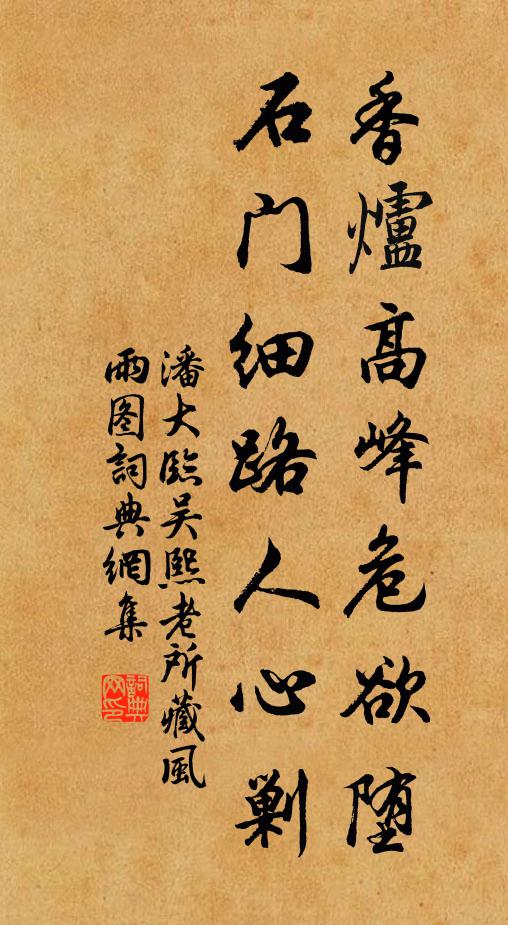 香爐高峰危欲堕
石門细路人心剿
潘大临吴熙老所藏風
雨图詞典網集
詞典网印